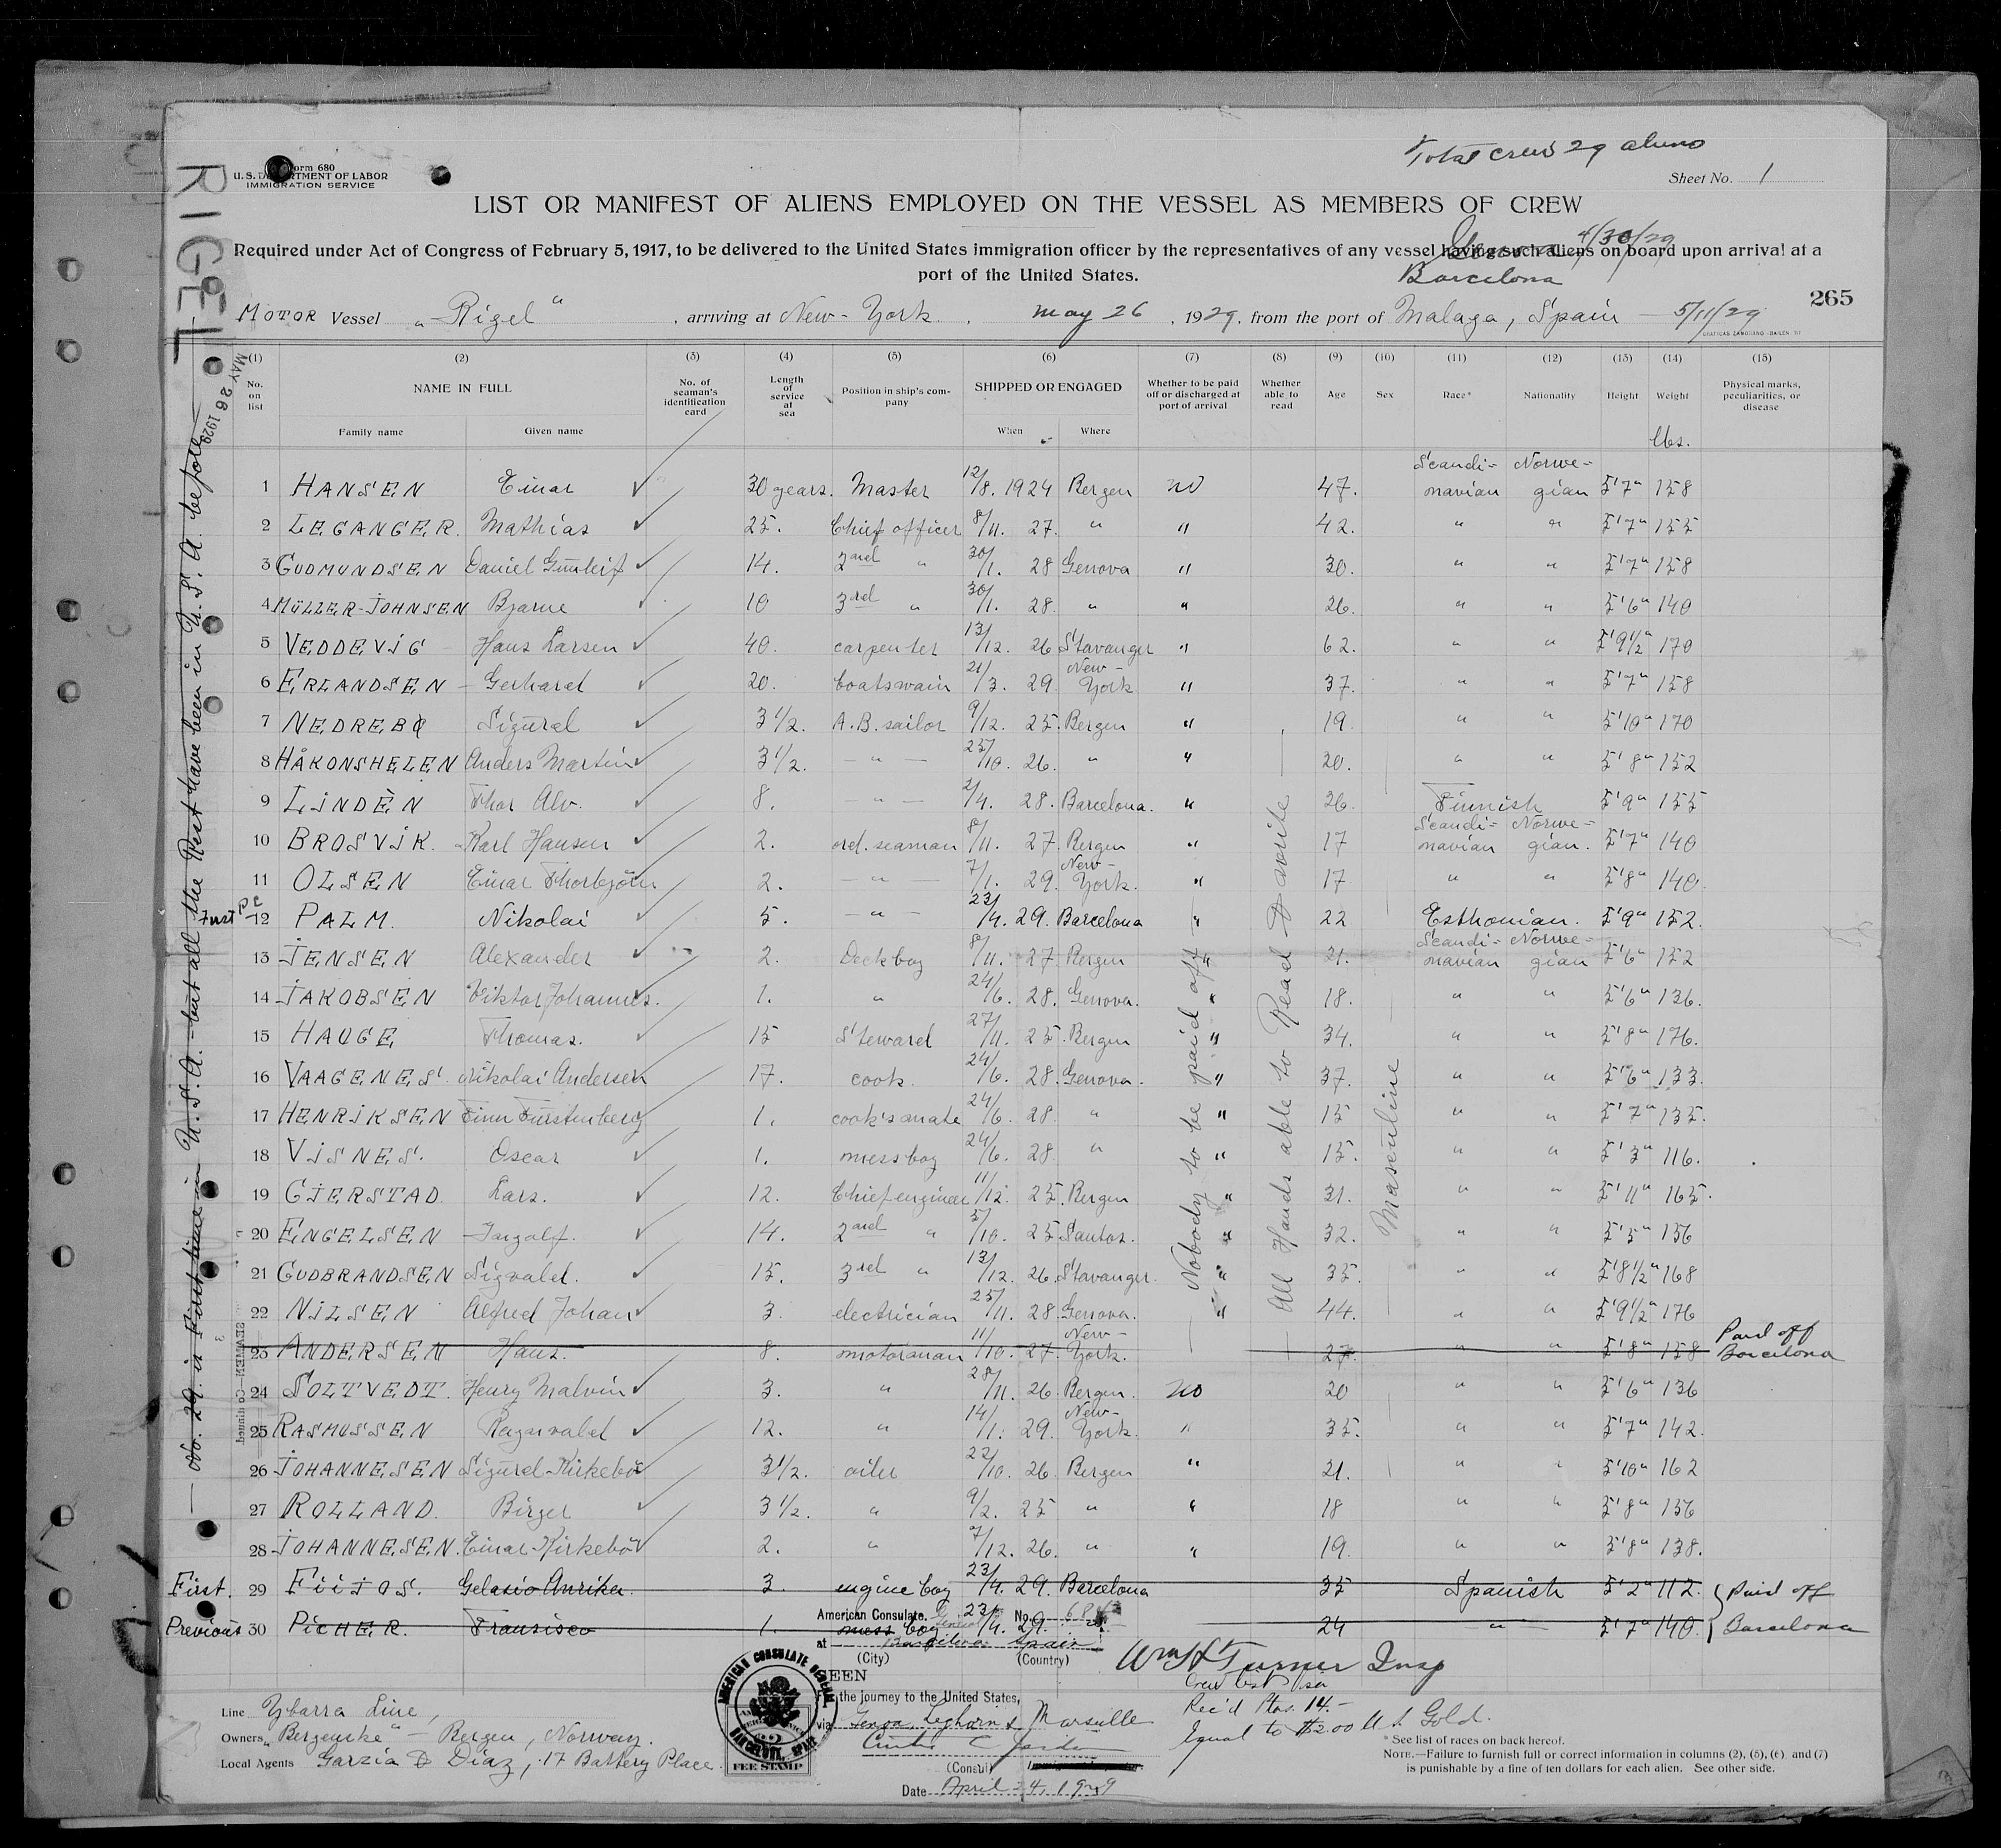 Total crew 29 aliens
Form 680
U.S. DEPARTMENT OF LABOR
IMMIGRATION SERVICE
Sheet No. 1
LIST OR MANIFEST OF ALIENS EMPLOYED ON THE VESSEL AS MEMBERS OF CREW
Required under Act of Congress of February 5, 1917, to be delivered to the United States immigration officer by the representatives of any vessel having such aliens on board upon arrival at a
port of the United States.
4/30/29
Barcelona
265
MOTOR Vessel "Rigel", arriving at New-York, May 26, 1929, from the port of Malaga, Spain - 5/11/29
RIGEL
MAY 26 1929
(1) (2) (3) (4) (5) (6) (7) (8) (9) (10) (11) (12) (13) (14) (15)
No. on list NAME IN FULL No. of seaman's identification card Length of service at sea Position in ship's company SHIPPED OR ENGAGED Whether to be paid off or discharged at port of arrival Whether able to read Age Sex Race* Nationality Height Weight Physical marks, peculiarities, or disease
Family name Given name When Where lbs.
1 HANSEN Einar 30 years. Master 12/8. 1924 Bergen no 47. Scandinavian Norwegian 5'7" 158
2 LEGANGER. Mathias 25. Chief officer 8/11. 27. " " 42. " " 5'7" 155
3 GUDMUNDSEN Daniel Gunleif 14. 2nd " 30/1. 28 Genova " 30. " " 5'7" 158
4 MÜLLER-JOHNSEN Bjarne 10 3rd " 30/1. 28. " " 26. " " 5'6" 140
5 VEDDEVIG Hans Larsen 40. carpenter 13/12. 26 Stavanger " 62. " " 5'9 1/2" 170
6 ERLANDSEN Gerhard 20. boatswain 21/3. 29. New-York " 37. " " 5'7" 158
7 NEDREBØ Sigurd 3 1/2. A.B. sailor 9/12. 25. Bergen " 19. " " 5'10" 170
8 HÅKONSHELEN Anders Martin 3 1/2. - " - 25/10. 26. " " 20. " " 5'8" 152
9 LINDÈN Thor Alv. 8. - " - 2/4. 28. Barcelona. " 26. Finnish 5'9" 155
10 BROSVIK. Karl Hansen 2. ord. seaman 8/11. 27. Bergen " 17 Scandinavian Norwegian. 5'7" 140
11 OLSEN Einar Thorbjörn 2. - " - 7/1. 29. New-York. " 17. " " 5'8" 140.
First 12 PALM. Nikolai 5. - " - 23/4. 29. Barcelona " 22 Esthonian. 5'9" 152.
13 JENSEN Alexander 2. Deckboy 8/11. 27 Bergen " 21. Scandinavian Norwegian 5'6" 152
14 JAKOBSEN Viktor Johannes. 1. " 24/6. 28. Genova. " 18. " " 5'6" 136.
15 HAUGE Thomas. 15 Steward 27/11. 25. Bergen " 34. " " 5'8" 176.
16 VAAGENES. Nikolai Andersen 17. cook. 24/6. 28. Genova. " 37. " " 5'6" 133.
17 HENRIKSEN Finn Fürstenberg 1. cook's mate 24/6. 28. " " 15 " " 5'7" 135.
18 VISNES. Oscar 1. messboy 24/6. 28. " " 15. " " 5'3" 116.
19 GJERSTAD. Lars. 12. Chief engineer 11/12. 25. Bergen " 31. " " 5'11" 165.
20 ENGELSEN Ingolf. 14. 2nd " 5/10. 25 Santos. " 32. " " 5'5" 156
21 GUDBRANDSEN Sigvald. 15. 3rd " 13/12. 26. Stavanger. " 35. " " 5'8 1/2" 168
22 NILSEN Alfred Johan 3. electrician 25/11. 28. Genova. " 44. " " 5'9 1/2" 176
23 ANDERSEN Hans. 8. motorman 11/10. 27. New-York. 27. " " 5'8" 158 Paid off Barcelona
24 SOLTVEDT. Henry Malvin 3. " 28/11. 26. Bergen. no 20 " " 5'6" 136
25 RASMUSSEN Ragnvald 12. " 14/1. 29. New-York. " 35. " " 5'7" 142.
26 JOHANNESEN Sigurd Kirkebö 3 1/2. oiler 22/10. 26. Bergen " 21. " " 5'10" 162
27 ROLLAND. Birger 3 1/2. " 9/2. 25 " " 18 " " 5'8" 156
28 JOHANNESEN. Einar Kirkebö 2. " 7/12. 26. " " 19. " " 5'8" 138.
First. 29 FIIJOS. Gelasio Anrike. 3. engine boy 23/4. 29. Barcelona 35 Spanish 5'2" 112. Paid off
Previous 30 PICHER. Fransisco 1. mess boy 23/4. 29. " 24 - " - 5'7" 140. Barcelona
Nobody to be paid off
All Hands able to Read & write
Masculine
No. 29. is First time in U.S.A. - but all the Rest have been in U.S.A. before
American Consulate General No.
at Barcelona Spain
(City) (Country)
SEEN
the journey to the United States,
via Genoa, Leghorn & Marseille
(Consul)
Date April 24, 1929
AMERICAN CONSULATE GENERAL
BARCELONA, SPAIN
FEE STAMP
Wm H Turner Insp
Crew list Visa
Rec'd Ptas. 14.-
Equal to $2.00 U.S. Gold.
Line Ybarra Line,
Owners "Bergenske" - Bergen, Norway.
Local Agents Garzia & Diaz, 17 Battery Place.
* See list of races on back hereof.
NOTE.—Failure to furnish full or correct information in columns (2), (5), (6) and (7)
is punishable by a fine of ten dollars for each alien. See other side.